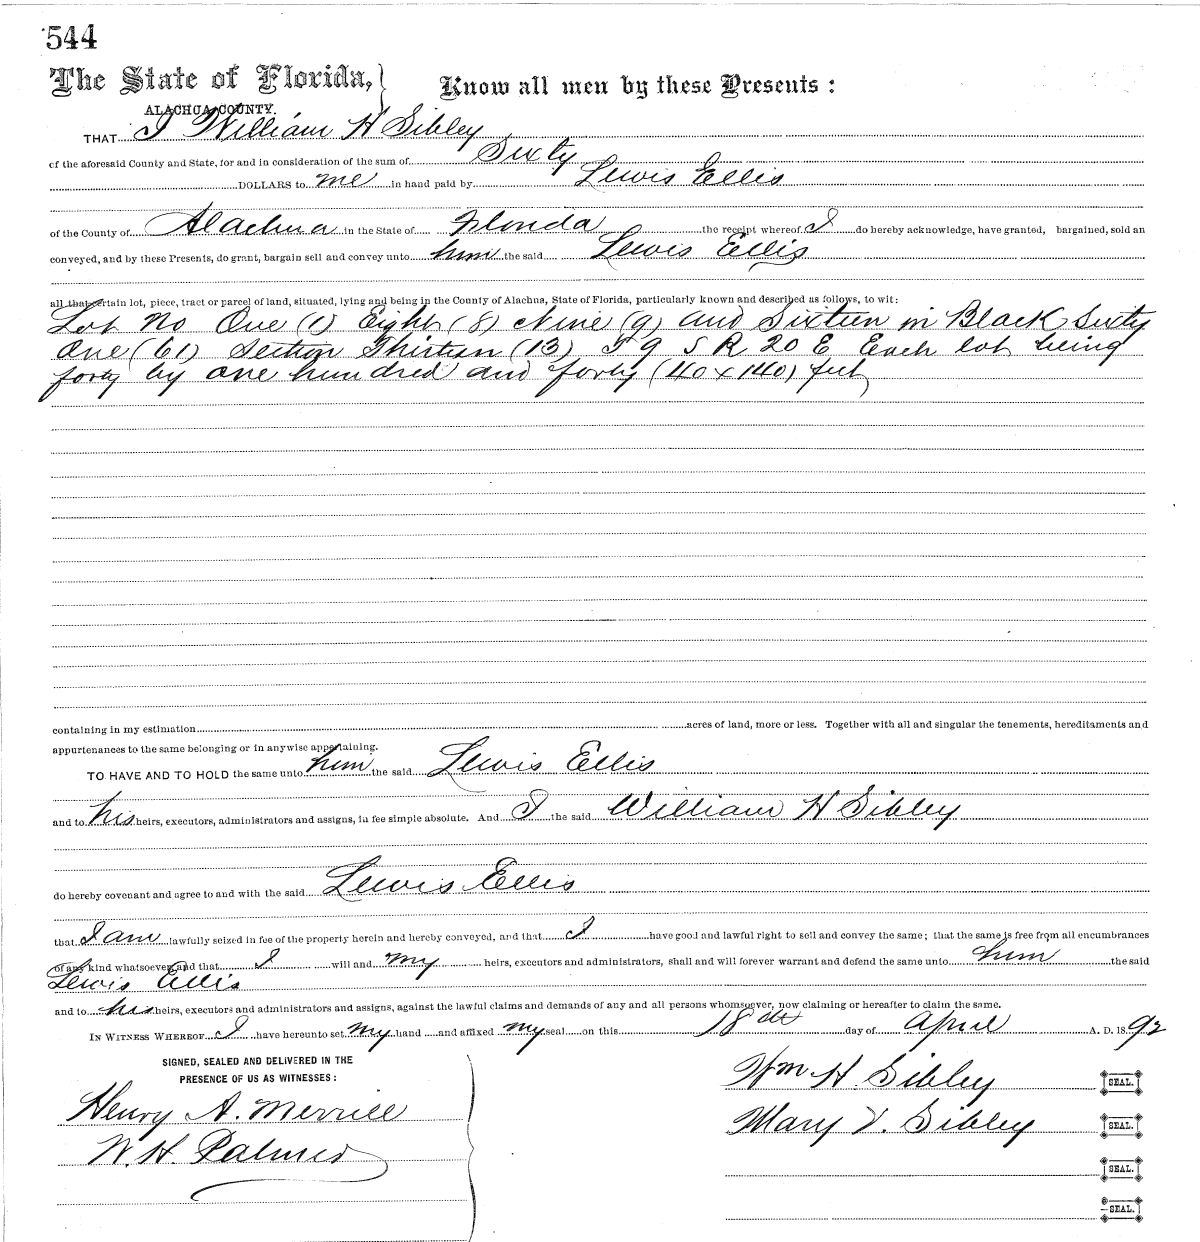 544
The State of Florida, Know all men by these Presents:
ALACHUA COUNTY.
THAT I William H Sibley
of the aforesaid County and State, for and in consideration of the sum of Sixty
DOLLARS to me in hand paid by Lewis Ellis
of the County of Alachua in the State of Florida the receipt whereof I do hereby acknowledge, have granted, bargained, sold an
conveyed, and by these Presents, do grant, bargain sell and convey unto him the said Lewis Ellis
all that certain lot, piece, tract or parcel of land, situated, lying and being in the County of Alachua, State of Florida, particularly known and described as follows, to wit:
Lot No One (1) Eight (8) Nine (9) and Sixteen in Block Sixty
One (61) Section Thirteen (13) T 9 S R 20 E Each lot being
forty by one hundred and forty (40 x 140) feet
containing in my estimation acres of land, more or less. Together with all and singular the tenements, hereditaments and
appurtenances to the same belonging or in anywise appertaining.
TO HAVE AND TO HOLD the same unto him the said Lewis Ellis
and to his heirs, executors, administrators and assigns, in fee simple absolute. And I the said William H Sibley
do hereby covenant and agree to and with the said Lewis Ellis
that I am lawfully seized in fee of the property herein and hereby conveyed, and that I have good and lawful right to sell and convey the same; that the same is free from all encumbrances
of any kind whatsoever, and that I will and my heirs, executors and administrators, shall and will forever warrant and defend the same unto him the said
Lewis Ellis
and to his heirs, executors and administrators and assigns, against the lawful claims and demands of any and all persons whomsoever, now claiming or hereafter to claim the same.
IN WITNESS WHEREOF I have hereunto set my hand and affixed my seal on this 18th day of April A. D. 1892
SIGNED, SEALED AND DELIVERED IN THE
PRESENCE OF US AS WITNESSES:
Wm. H. Sibley SEAL.
Henry A. Merrill
Mary V. Sibley SEAL.
W. H. Palmer
SEAL.
SEAL.